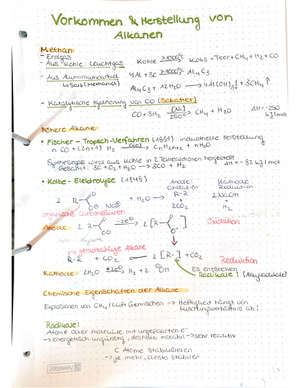 Vorkommen & Herstellung von
Alkanen
Methan:
- Erdgas
- Aus Kohle: Leuchtgas Kohle >1000°C Koks + Teer + CH4 + H2 + CO
- Aus Aluminiumcarbid 4Al + 3C >1000°C Al4C3
Al4C3 + 12H2O → 4Al(OH)3 + 3CH4 ↑
- Katalytische Hydrierung von CO (Sabatier)
CO + 3H2 [Ni] 250°C CH4 + H2O ΔH = -250 kJ/mol
Höhere Alkane:
• Fischer - Tropsch - Verfahren industrielle Herstellung
n CO + (2n+1) H2 CnH2n+2 + nH2O
Synthesegas wird aus Kohle in 2 Teilreaktionen hergestellt
Gesamt: 3C + O2 + H2O → 3CO + H2
• Kolbe - Elektrolyse
Anode: Kathode:
Oxidation Reduktion
+ H2O → R-R 2NaOH
+ +
2CO2 H2
organische Carbonsäuren
Anode: 2 -2e⊖ 2 Oxidation
→ geradzahlige Alkane
R-R + CO2 ← 2 [R·] + CO2 Reduktion
Kathode: 2H2O +2e⊖ H2 + 2 OH Es entstehen
Radikale!
Chemische Eigenschaften der Alkane
Explosionen von CH4 / Luft Gemischen → Heftigkeit hängt von
Mischungsverhältnis ab!
Radikale:
Atom oder Moleküle mit ungepaarten e⊖
→ energetisch ungünstig, deshalb instabil → sehr reaktiv
C Atome stabilisieren
→ je mehr, desto stabiler